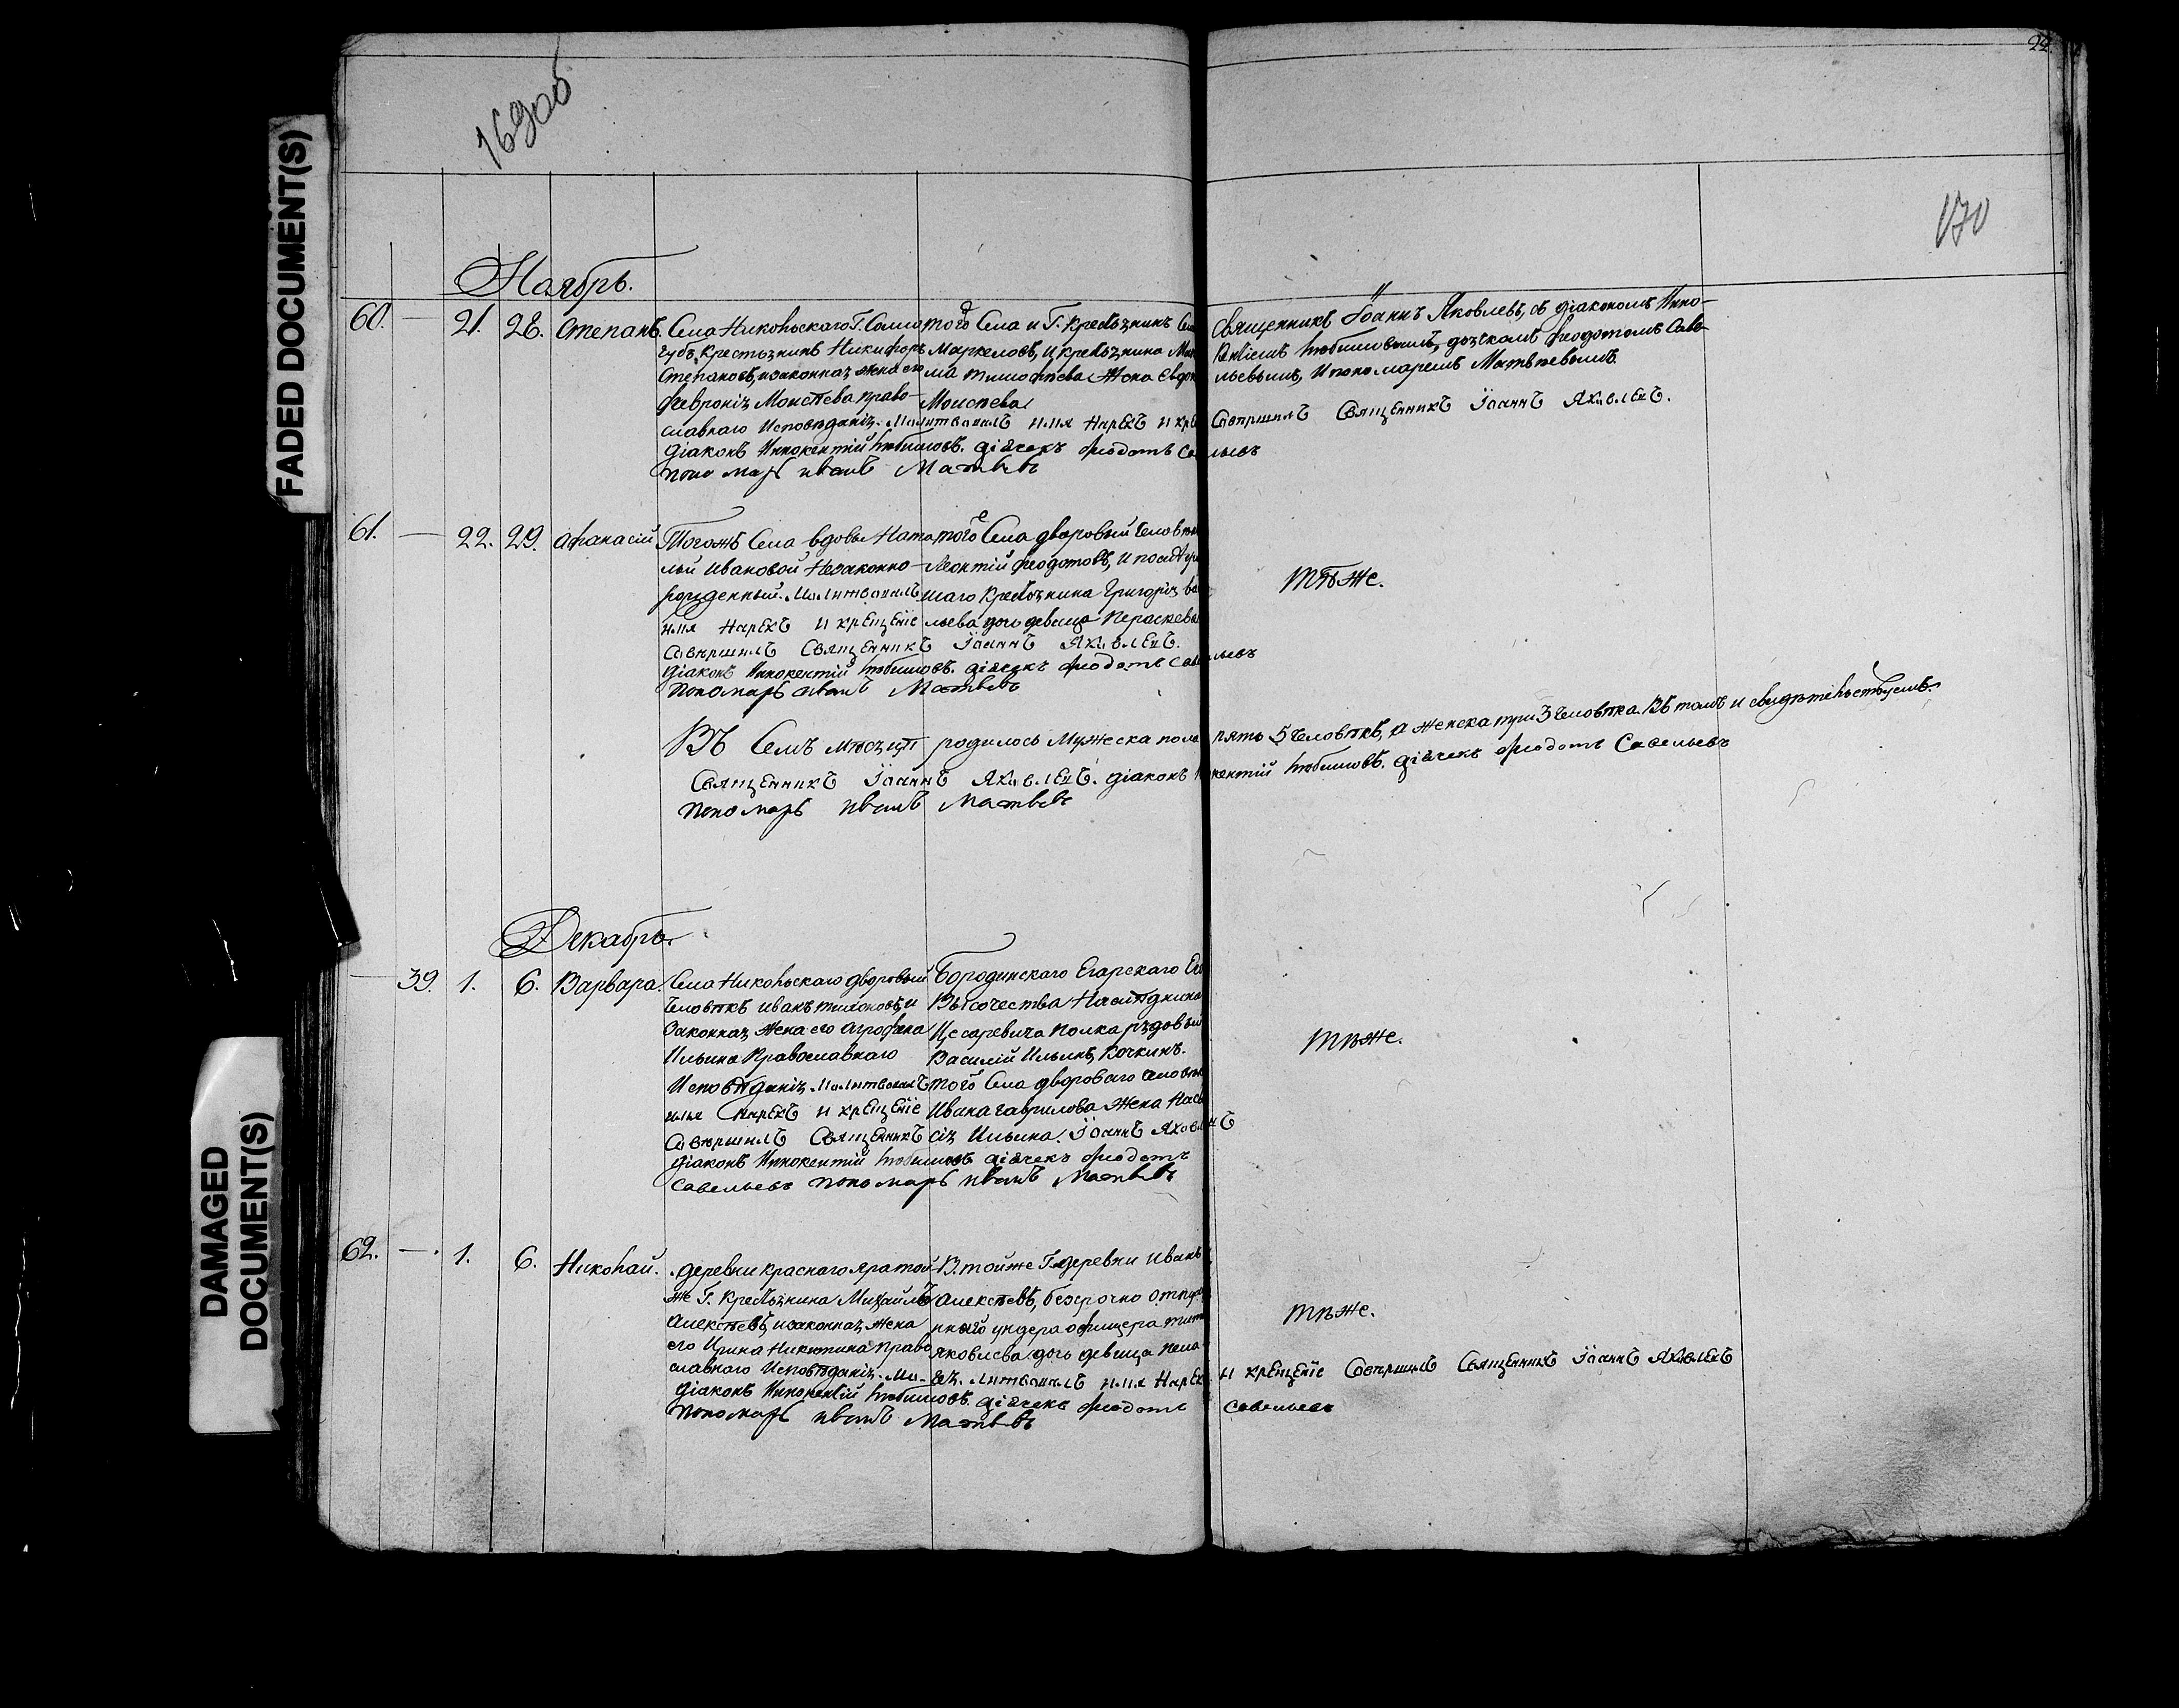 169 об
22.
170
Ноябрь.
60. — 21. 28. Степанъ.
Села Никольскаго Г.
губъ, Крестьянинъ Никифоръ
Степановъ, изаконная жена его
Феврония Моисѣева право-
славнаго Исповѣдания. Молитвовалъ имя Нарекъ и кре
Діаконъ Иннокентій Любимовъ. Дiячекъ Феодотъ Са
Пономарь Иванъ Матвѣвъ
того Села и Г. Крестьянинъ
Маркеловъ, и Крестьянина
ма Тимофѣева Жена Евдок
Моисѣева
Священникъ Іоаннъ Яковлевъ, съ діакономъ Инно-
кентіемъ Любимовымъ, дьячкомъ Феодотомъ Саве-
льевымъ, и пономаремъ Матвѣевымъ.
Совѣршилъ Священникъ Іоаннъ Яковлевъ.
льевъ
61. — 22. 29. Афанасій
Тогожъ Села вдовы Ната
льи Ивановой Незаконно-
рожденный. Молитвовалъ
имя Нарекъ и крещеніе
Совѣршилъ Священникъ Іоаннъ Яковлевъ.
Діаконъ Иннокентій Любимовъ. Дiячекъ Феодотъ Савельевъ
Пономарь Иванъ Матвѣвъ
того Села дворовый Человѣк
Леонтій Феодотовъ, и
шаго Крестьянина Григорія Ва
льева дочь девица Параскева
тѣже.
Въ Семъ мѣсяцѣ родилось Мужеска пола пять 5 Человѣкъ, а женска три 3 Человѣка. Въ томъ и свидѣтельствуемъ.
Священникъ Іоаннъ Яковлевъ. Діаконъ кентій Любимовъ. Дiячекъ Феодотъ Савельевъ
Пономарь Иванъ Матвѣвъ
Декабрь.
— 39. 1. 6. Варвара.
Села Никольскаго дворовый
Человѣкъ Иванъ Тихоновъ, и
Законная Жена его Агрофена
Ильина Православнаго
Исповѣдания. Молитвовалъ
имя Нарекъ и крещеніе
Совѣршилъ Священникъ Іоаннъ Яковлевъ
Діаконъ Иннокентій Любимовъ Дiячекъ Феодотъ
Савельевъ Пономарь Иванъ Матвѣвъ
Бородинскаго Егарскаго Его
Высочества Наслѣдника
Цесаревича Полка рядовый
Василій Ильинъ, Кочкинъ.
того Села двороваго Человѣк
Ивана Гаврилова Жена
сія Ильина.
тѣже.
62. — 1. 6. Николай.
деревни Краснаго Яра той-
же Г. Крестьянина Михайлъ
Алексѣевъ, изаконная Жена
его Ирина Никитина Право
славнаго Исповѣдания. Мо-
Діаконъ Иннокентій Любимовъ. Дiячекъ Феодотъ Савельевъ
Пономарь Иванъ Матвѣвъ
В. тойже Г. деревни Иванъ
Алексѣевъ, безсрочно отпущ
ннаго ундера офицера
Яковлева дочь девица Пела
ея. литвовалъ имя Нарек и крещеніе Совѣршилъ Священникъ Іоаннъ Яковлевъ
тѣже.
FADED DOCUMENT(S)
DAMAGED
DOCUMENT(S)